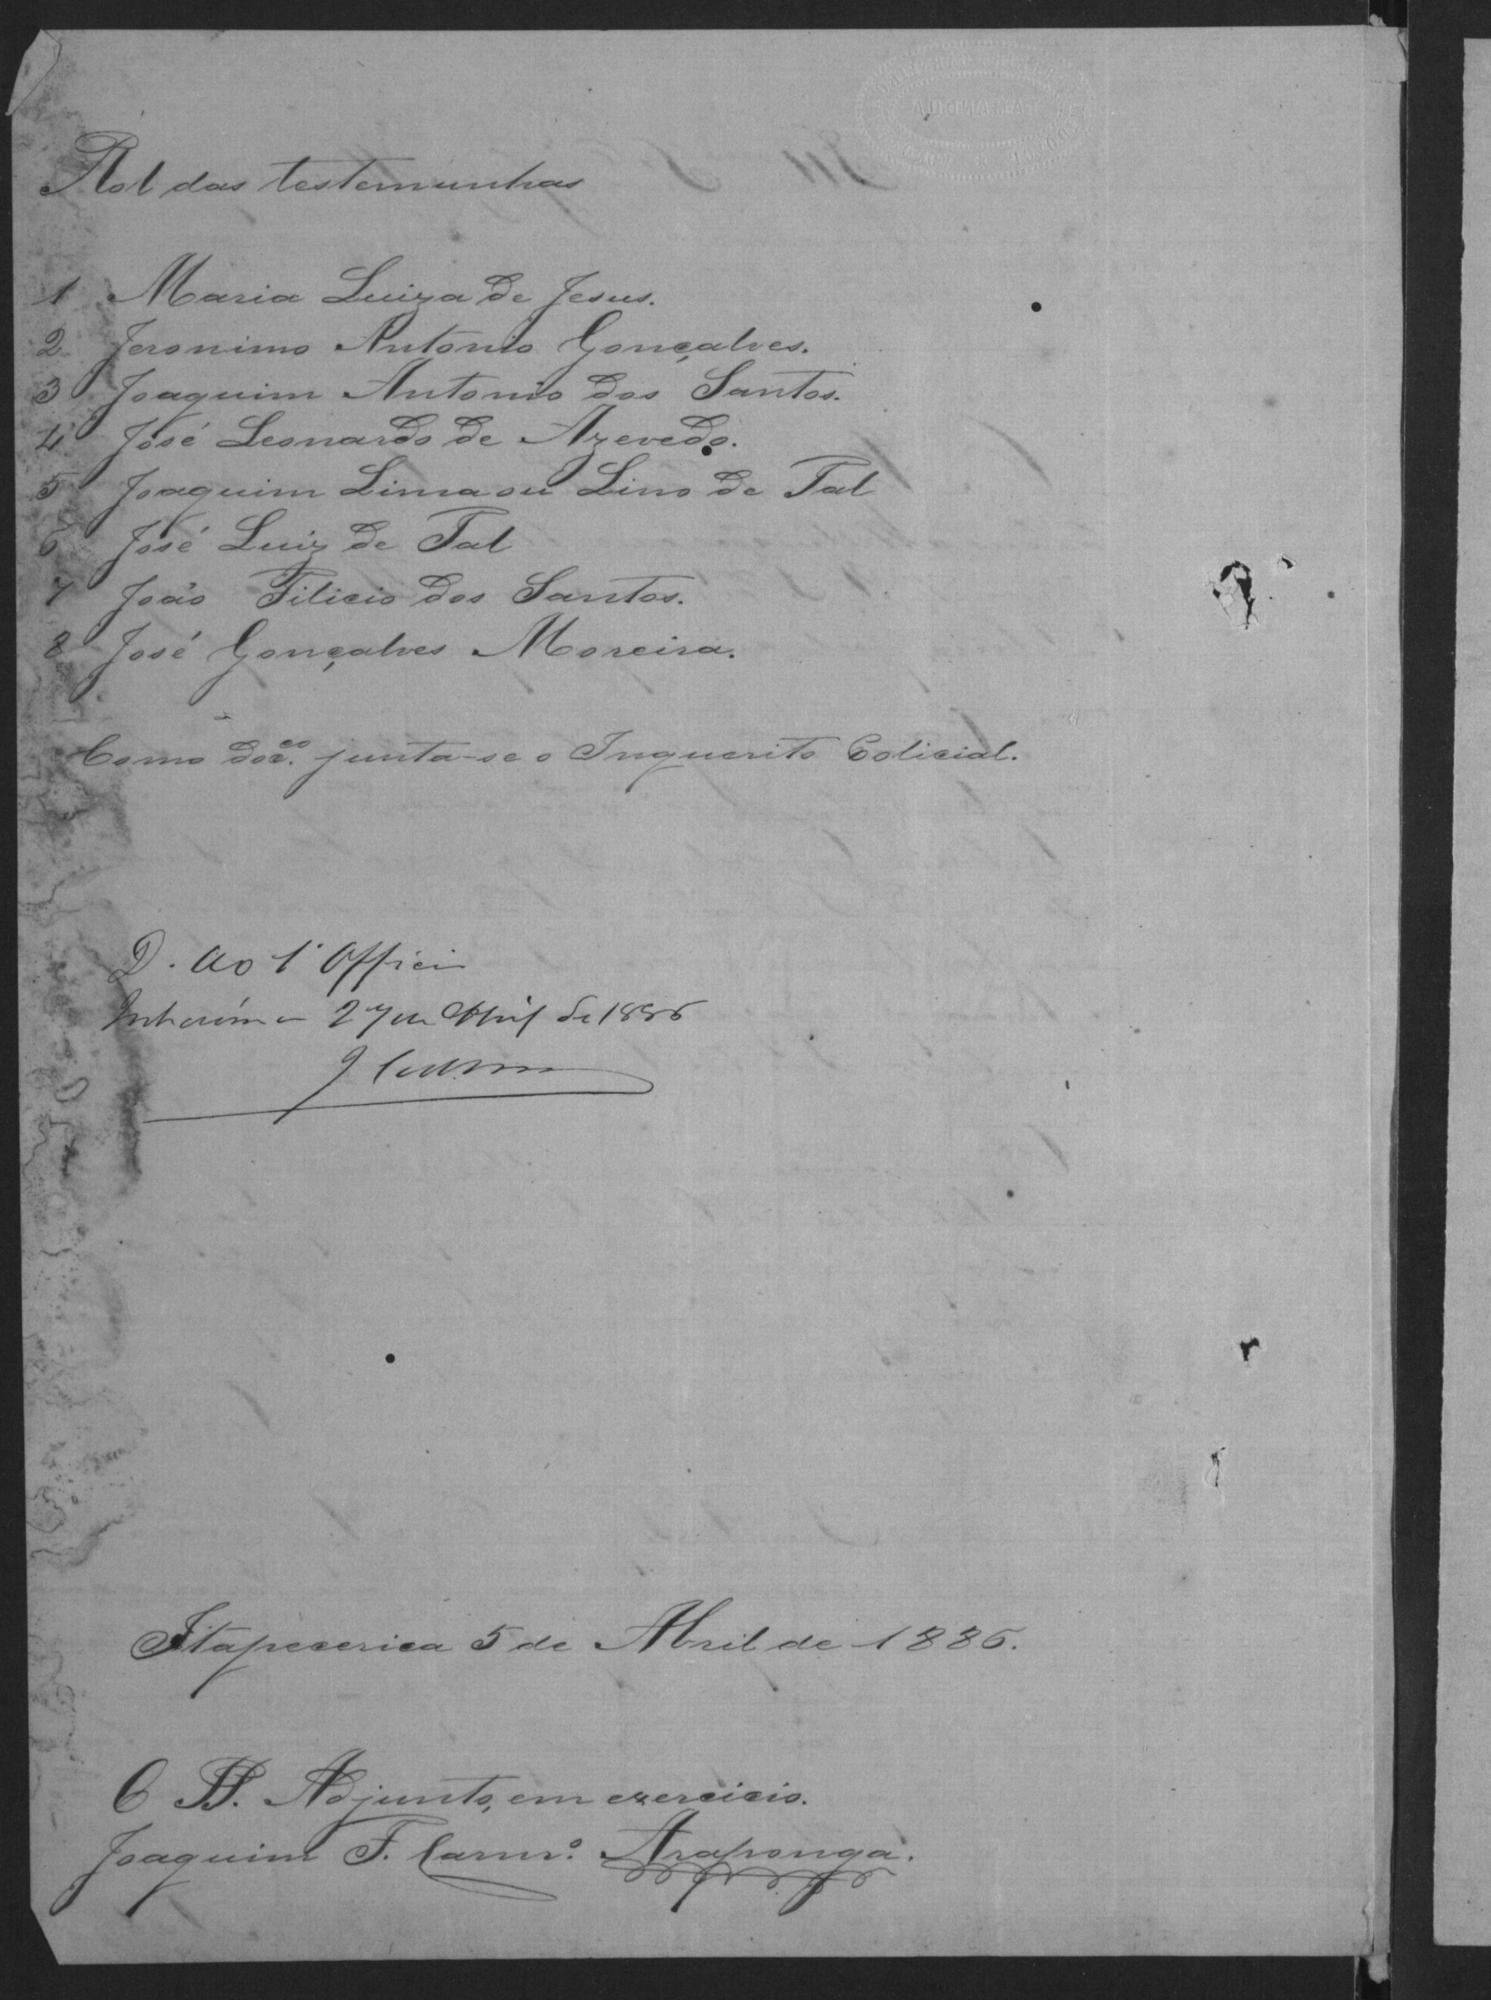 Rol das testemunhas
1 Maria Luiza de Jesus.
2 Jeronimo Antonio Gonçalves.
3 Joaquim Antonio dos Santos.
4 José Leonardo de Azevedo.
5 Joaquim Lima ou Lino de Tal
6 José Luiz de Tal
7 João Filicio dos Santos.
8 José Gonçalves Moreira.
Como doc.co junta-se o Inquerito Policial.
D. Ao 1º Officio
27 de Abril de 1886
Itapecerica 5 de Abril de 1886.
O P. Adjunto, em exercicio.
Joaquim F. Carnr.º Araponga.